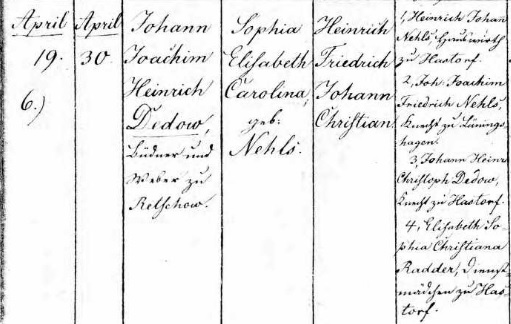 April
19.
6.)
April
30.
Johann
Joachim
Heinrich
Dedow,
Büdner und
Weber zu
Retschow.
Sophia
Elisabeth
Carolina,
geb:
Nehls.
Heinrich
Friedrich
Johann
Christian.
1, Heinrich Johan
Nehls, Hauswirth
zu Hastorf.
2, Joh. Joachim
Friedrich Nehls,
Knecht zu Lünings-
hagen.
3, Johann Heinr.
Christoph Dedow,
Knecht zu Hastorf.
4, Elisabeth So-
phia Christiana
Radder, Dienst-
mädchen zu Has-
torf.